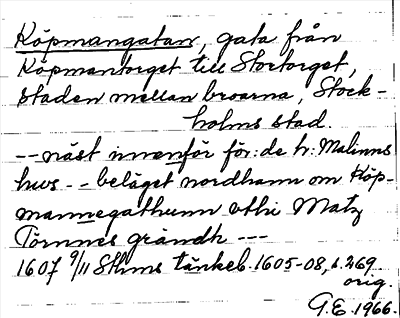 Köpmangatan, gata från
Köpmantorget till Stortorget,
staden mellan broarna, Stock-
holms stad.
-- näst innenför för: de h: Malinns
hws -- beläget nordhann om Köp-
mannegathunn vthi Matz
Törnnes grändh ---
1607 9/11 Sthms tänkeb. 1605-08, s. 269
orig.
G.E. 1966.